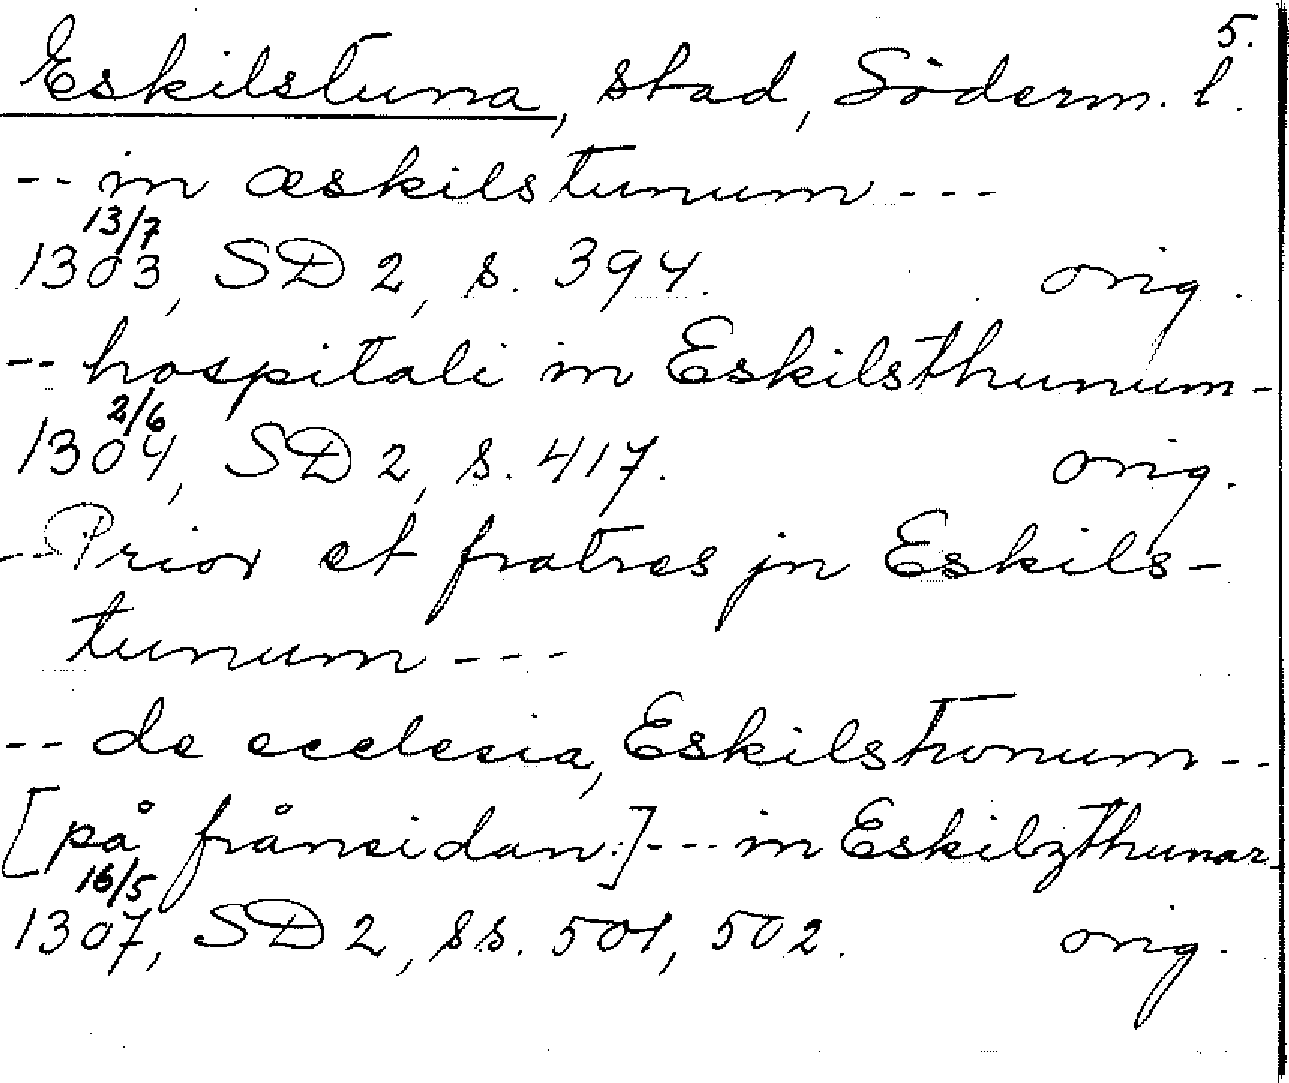 5.
Eskilstuna, stad, Söderm. l.
-- in æskilstunum ---
13/7
1303, SD 2, s. 394. orig.
-- hospitali in Eskilsthunum-
2/6
1304, SD 2, s. 417. orig.
-- Prior et fratres jn Eskils-
tunum ---
-- de ecclesia, Eskilsthonum --
[på frånsidan:] --- in Eskilzthunar
16/5
1307, SD 2, ss. 501, 502. orig.